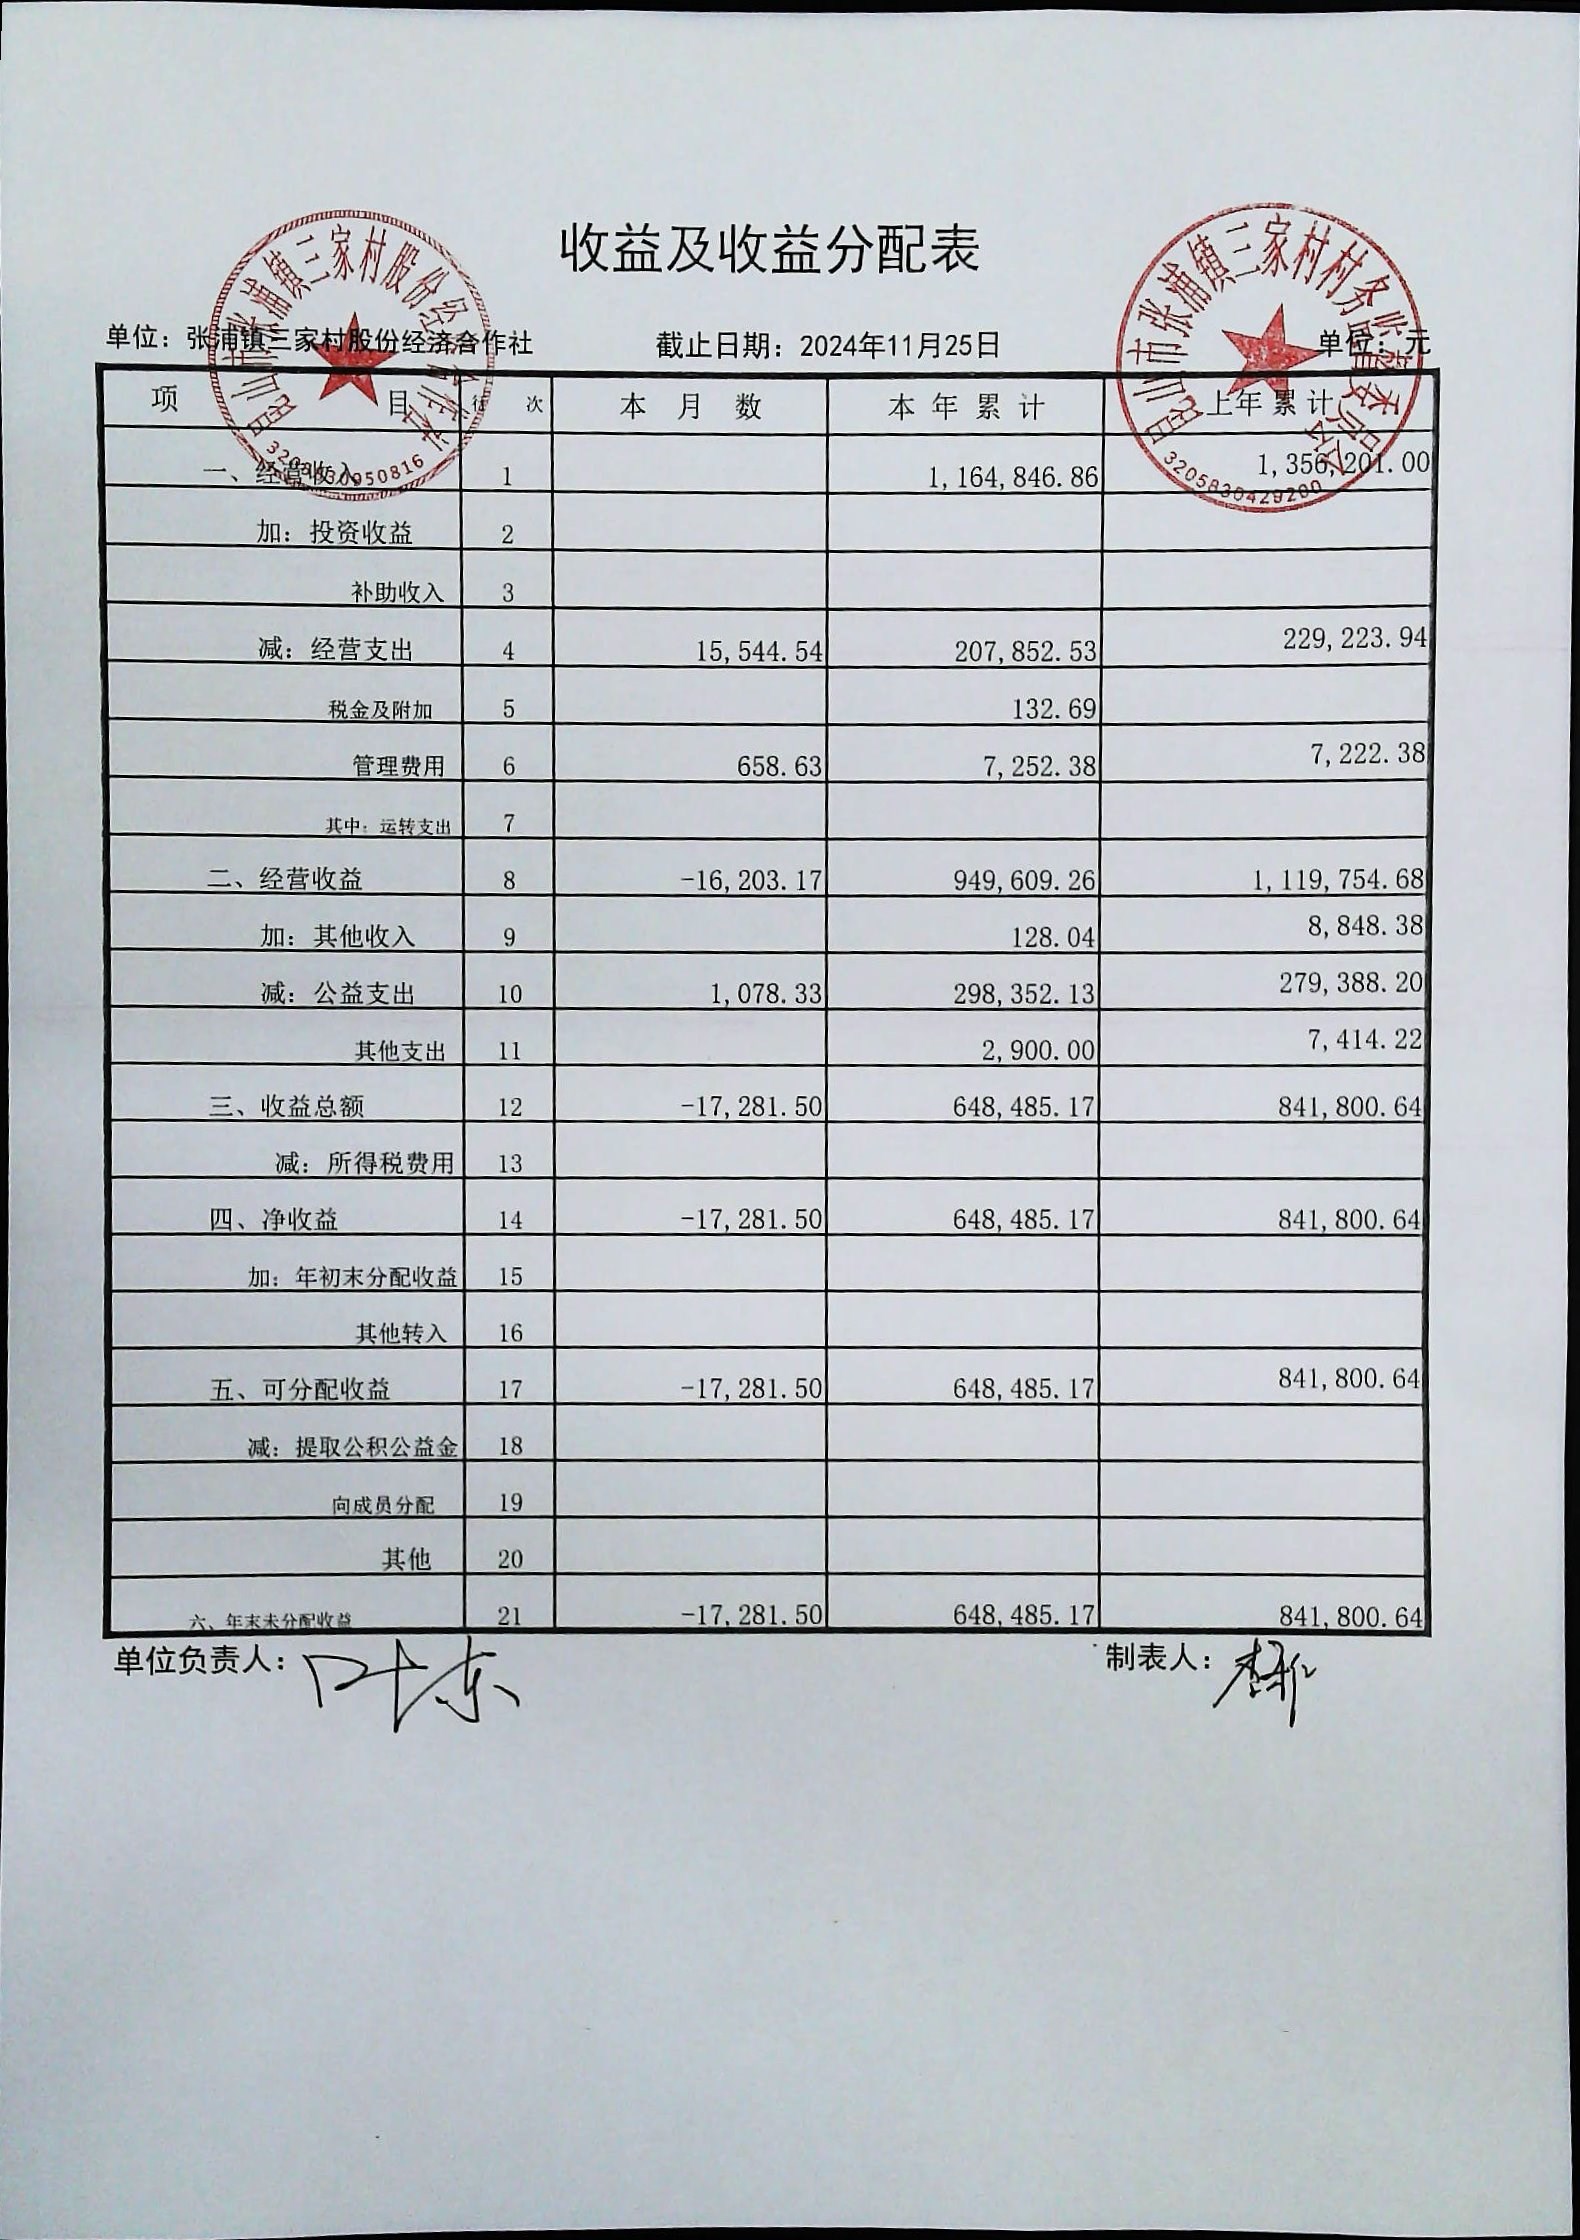 收益及收益分配表
单位：张浦镇三家村股份经济合作社 截止日期：2024年11月25日 单位：元
项 目 行 次 本 月 数 本 年 累 计 上年 累 计
一、经营收入 1 1,164,846.86 1,356,201.00
加：投资收益 2
补助收入 3
减：经营支出 4 15,544.54 207,852.53 229,223.94
税金及附加 5 132.69
管理费用 6 658.63 7,252.38 7,222.38
其中：运转支出 7
二、经营收益 8 -16,203.17 949,609.26 1,119,754.68
加：其他收入 9 128.04 8,848.38
减：公益支出 10 1,078.33 298,352.13 279,388.20
其他支出 11 2,900.00 7,414.22
三、收益总额 12 -17,281.50 648,485.17 841,800.64
减：所得税费用 13
四、净收益 14 -17,281.50 648,485.17 841,800.64
加：年初末分配收益 15
其他转入 16
五、可分配收益 17 -17,281.50 648,485.17 841,800.64
减：提取公积公益金 18
向成员分配 19
其他 20
六、年末未分配收益 21 -17,281.50 648,485.17 841,800.64
单位负责人：叶东 制表人：
昆山市张浦镇三家村股份经济合作社
3205830950816
昆山市张浦镇三家村村务监督委员会
3205830429200